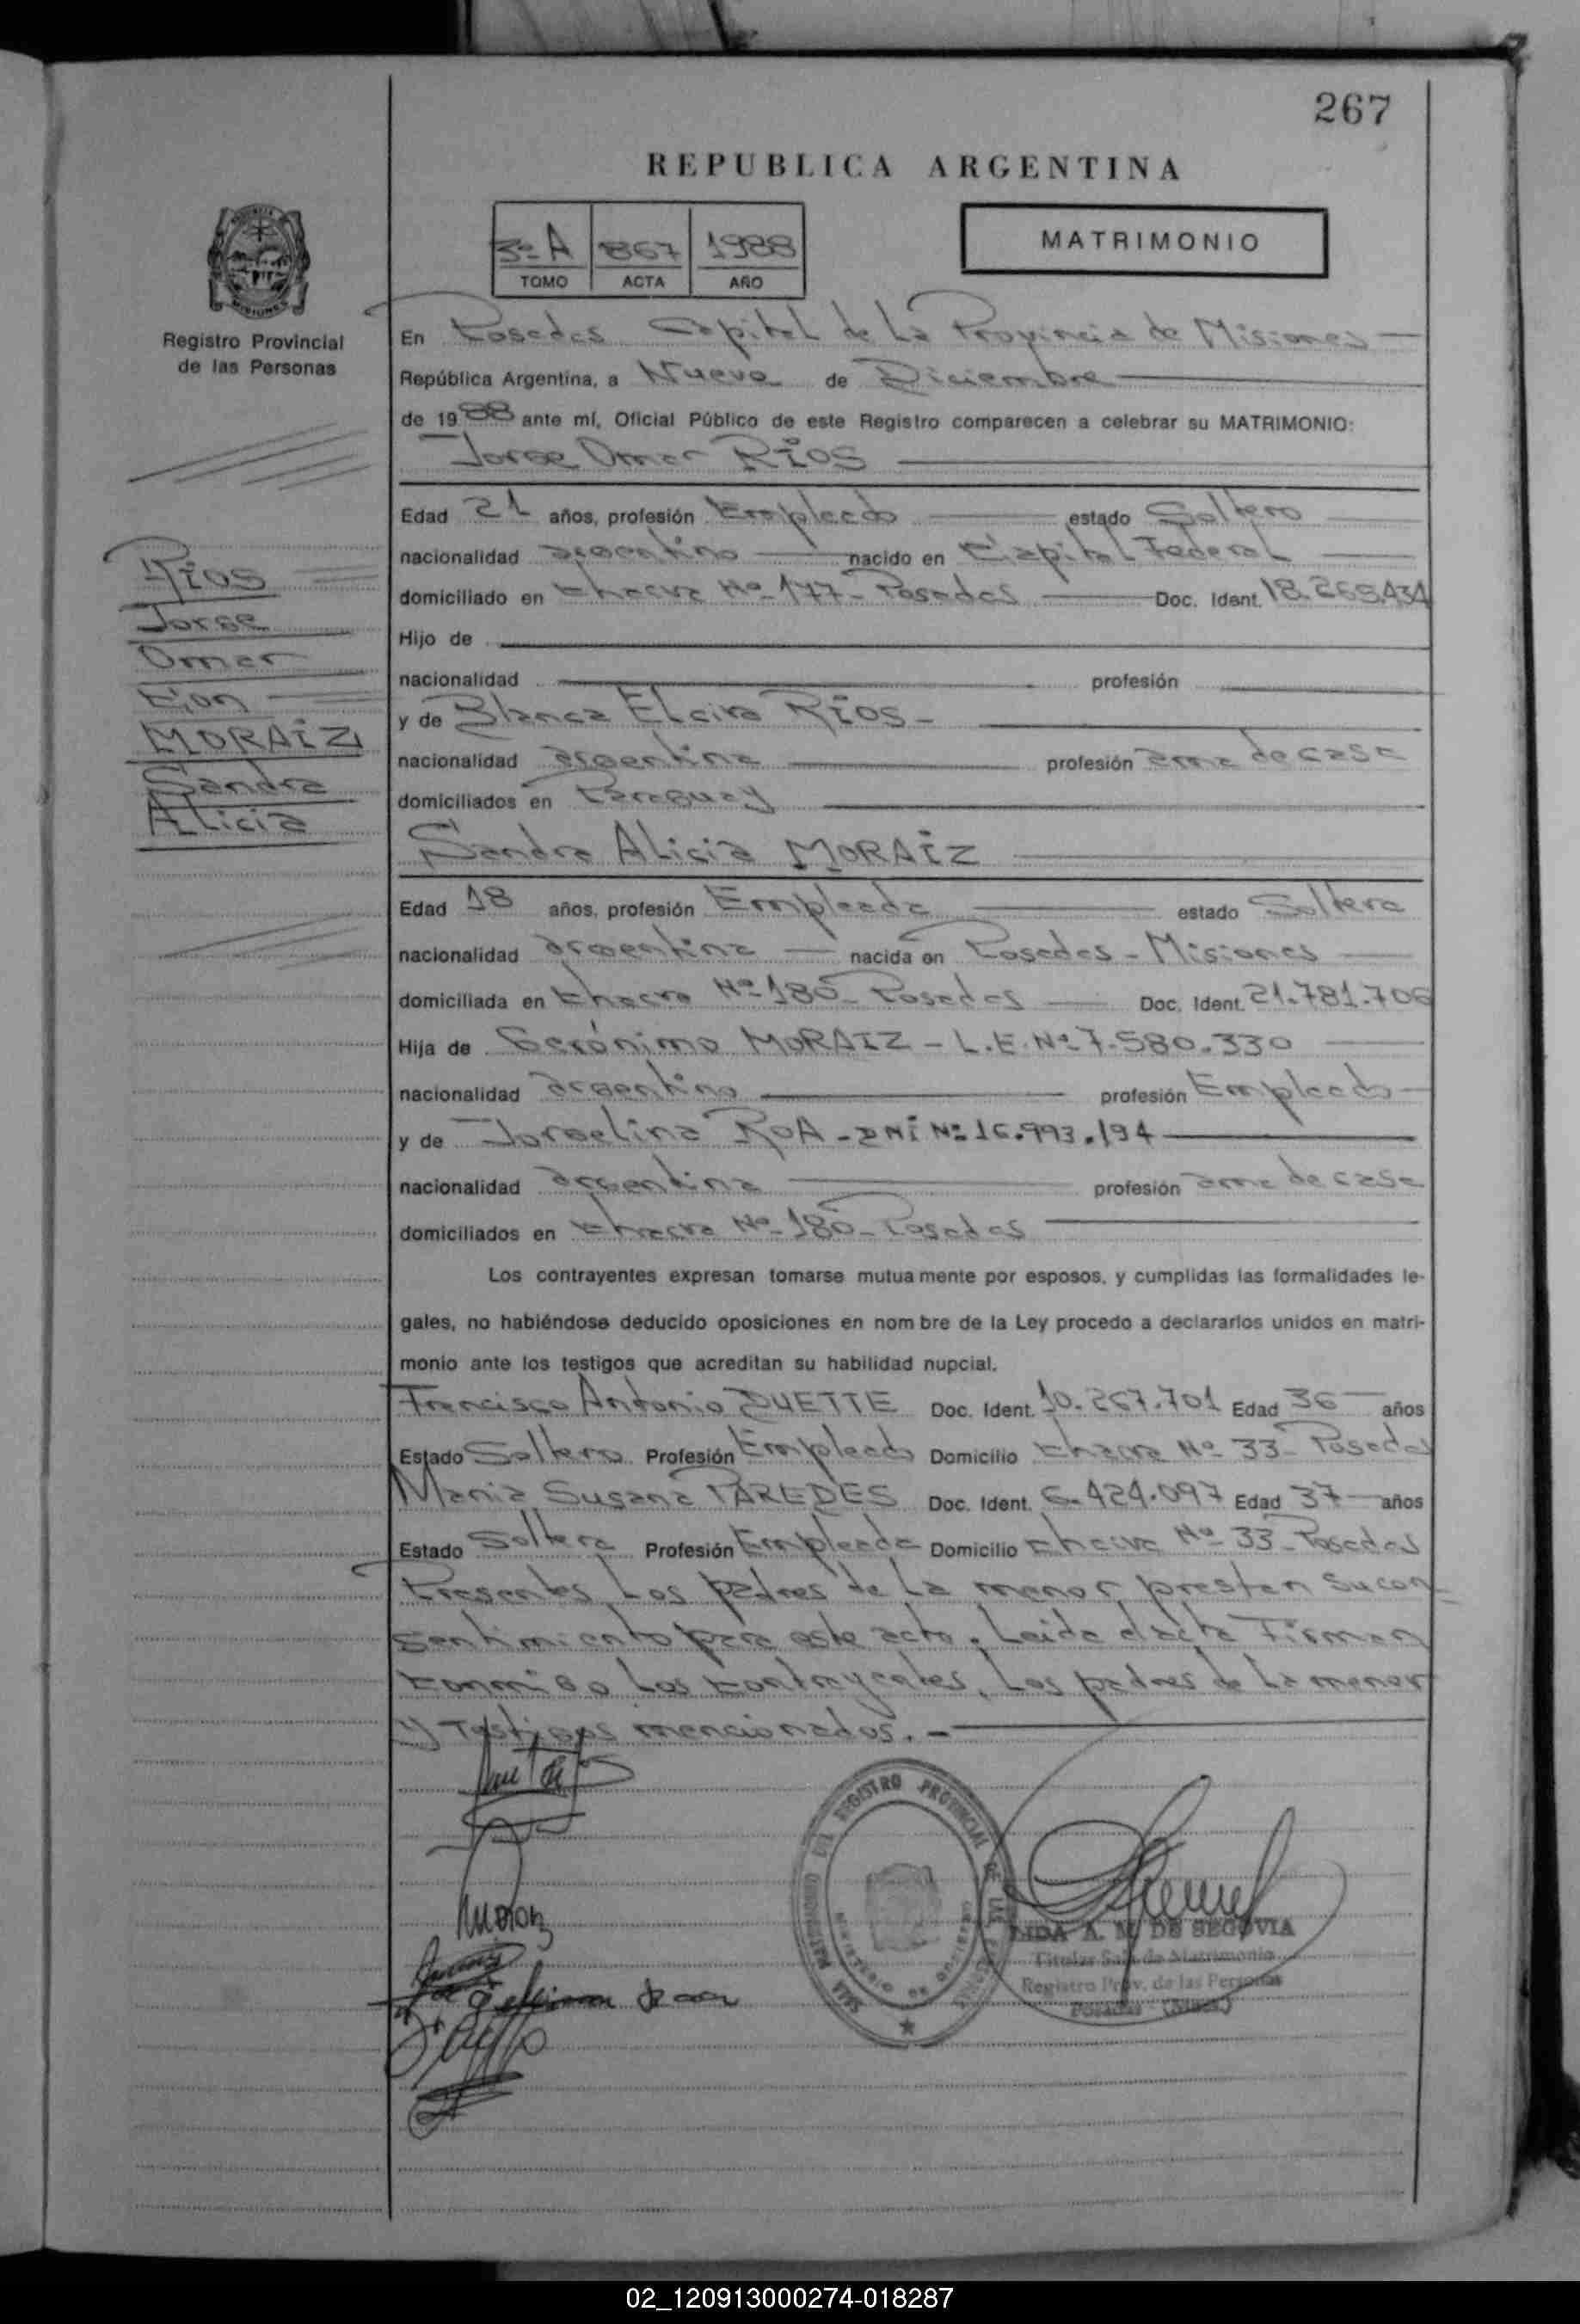 267
REPUBLICA ARGENTINA
3º A 867 1988
TOMO ACTA AÑO
MATRIMONIO
Registro Provincial
de las Personas
En Posadas Capital de La Provincia de Misiones
República Argentina, a Nueve de Diciembre
de 1988 ante mí, Oficial Público de este Registro comparecen a celebrar su MATRIMONIO:
Jorge Omar RIOS
Edad 21 años, profesión Empleado estado Soltero
nacionalidad argentino nacido en Capital Federal
domiciliado en Chacra Nº 177 - Posadas Doc. Ident. 18.268.434
Hijo de
nacionalidad profesión
y de Blanca Elcira RIOS -
nacionalidad argentina profesión ama de casa
domiciliados en Paraguay
RIOS
Jorge
Omar
Con
MORAIZ
Sandra
Alicia
Sandra Alicia MORAIZ
Edad 18 años, profesión Empleada estado Soltera
nacionalidad argentina nacida en Posadas - Misiones
domiciliada en Chacra Nº 180 - Posadas Doc. Ident. 21.781.706
Hija de Gerónimo MORAIZ - L.E. Nº 7.580.330
nacionalidad argentino profesión Empleado
y de Jorgelina ROA - DNI Nº 16.993.194
nacionalidad argentina profesión ama de casa
domiciliados en Chacra Nº 180 - Posadas
Los contrayentes expresan tomarse mutuamente por esposos, y cumplidas las formalidades le-
gales, no habiéndose deducido oposiciones en nombre de la Ley procedo a declararlos unidos en matri-
monio ante los testigos que acreditan su habilidad nupcial.
Francisco Antonio DUETTE Doc. Ident. 10.267.701 Edad 36 años
Estado Soltero Profesión Empleado Domicilio Chacra Nº 33 - Posadas
Maria Susana PAREDES Doc. Ident. 6.424.097 Edad 37 años
Estado Soltera Profesión Empleada Domicilio Chacra Nº 33 - Posadas
Presentes Los padres de La menor prestan su con-
sentimiento para este acto. Leida el acta Firman
conmigo Los contrayentes, Los padres de La menor
y Testigos mencionados. -
SALA MATRIMONIO DEL REGISTRO PROVINCIAL DE LAS PERSONAS
MINISTERIO DE GOBIERNO
LIDA A. M. DE SEGOVIA
Titular Sala de Matrimonio
Registro Prov. de las Personas
Posadas (Mnes.)
02_120913000274-018287